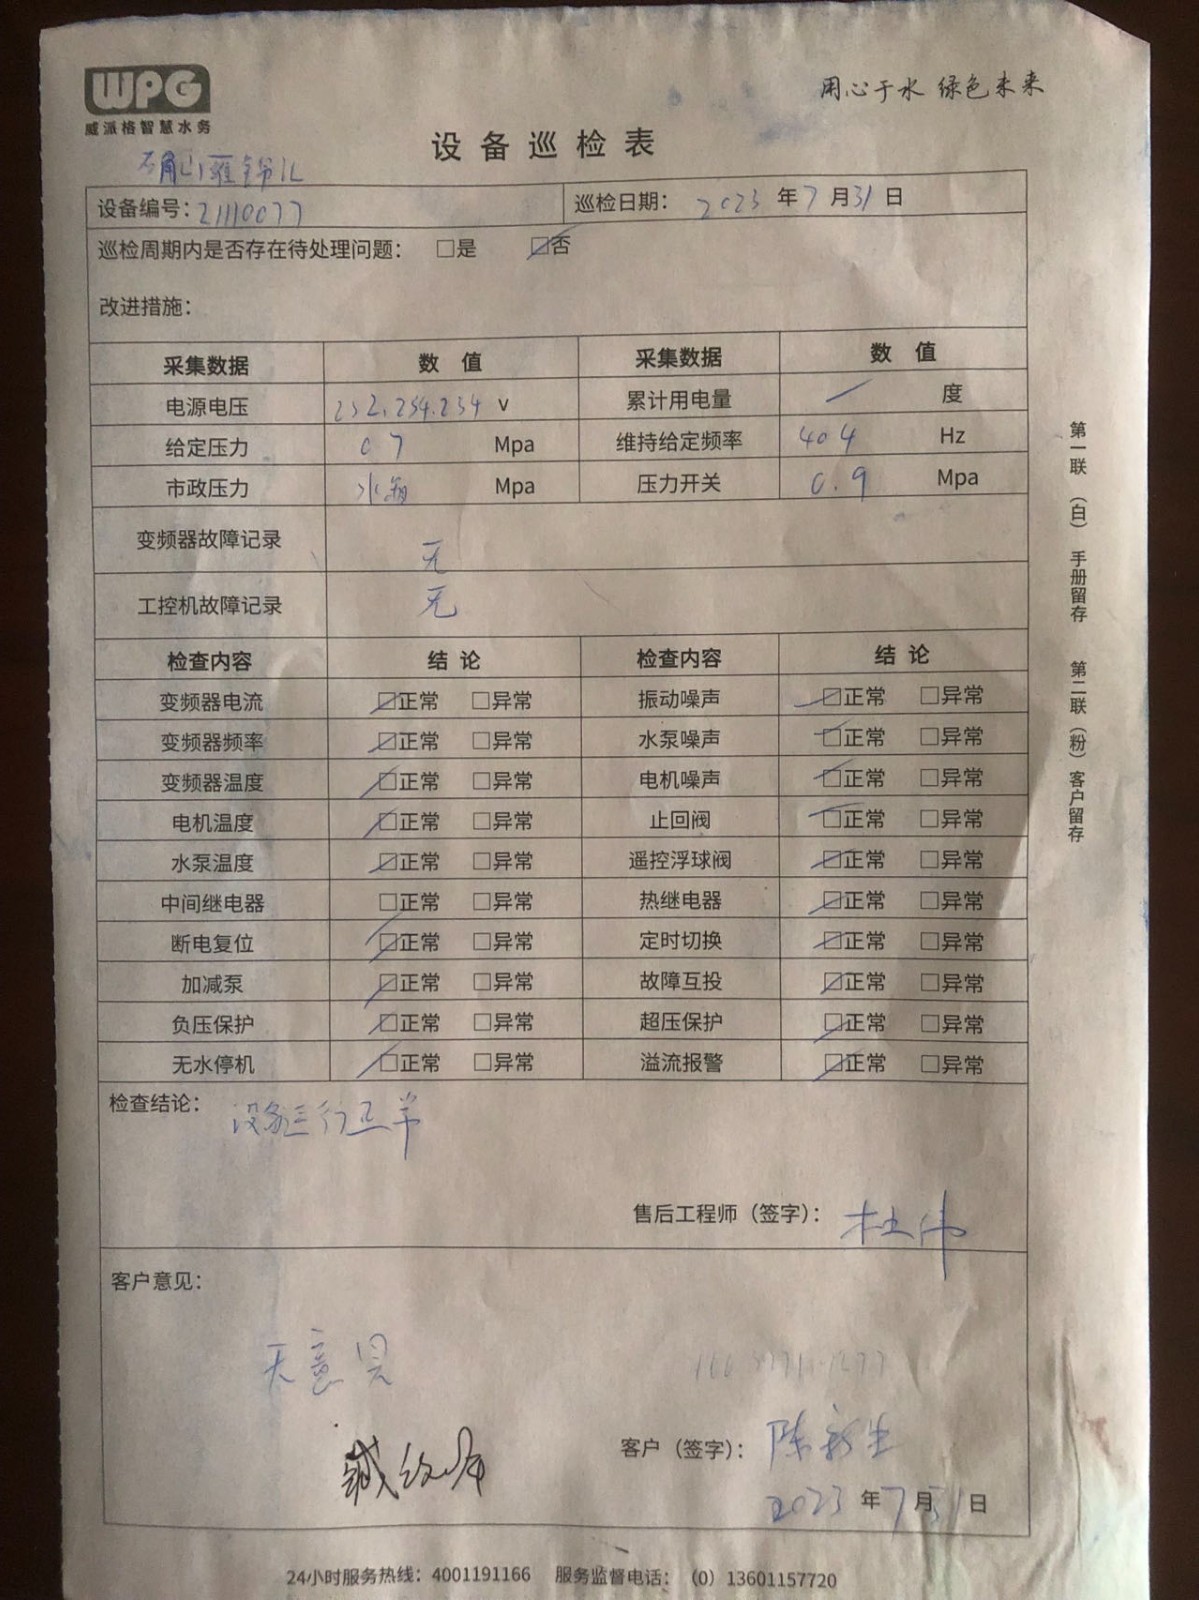 WPG
威派格智慧水务
用心于水 绿色未来
设备巡检表
确山雍锦汇
设备编号：21110077 巡检日期： 2023 年 7 月 31 日
巡检周期内是否存在待处理问题： □是 ☑否
改进措施：
采集数据 数 值 采集数据 数 值
电源电压 232.234.234 V 累计用电量 / 度
给定压力 0.7 Mpa 维持给定频率 40.4 Hz
市政压力 水箱 Mpa 压力开关 0.9 Mpa
变频器故障记录 无
工控机故障记录 无
检查内容 结 论 检查内容 结 论
变频器电流 ☑正常 □异常 振动噪声 ☑正常 □异常
变频器频率 ☑正常 □异常 水泵噪声 ☑正常 □异常
变频器温度 ☑正常 □异常 电机噪声 ☑正常 □异常
电机温度 ☑正常 □异常 止回阀 ☑正常 □异常
水泵温度 ☑正常 □异常 遥控浮球阀 ☑正常 □异常
中间继电器 □正常 □异常 热继电器 ☑正常 □异常
断电复位 ☑正常 □异常 定时切换 ☑正常 □异常
加减泵 ☑正常 □异常 故障互投 ☑正常 □异常
负压保护 ☑正常 □异常 超压保护 ☑正常 □异常
无水停机 ☑正常 □异常 溢流报警 ☑正常 □异常
检查结论： 设备运行正常
售后工程师（签字）： 杜伟
客户意见：
无意见
客户（签字）： 陈新生
2023 年 7 月 31 日
24小时服务热线：4001191166 服务监督电话：（0）13601157720
第一联（白）手册留存 第二联（粉）客户留存